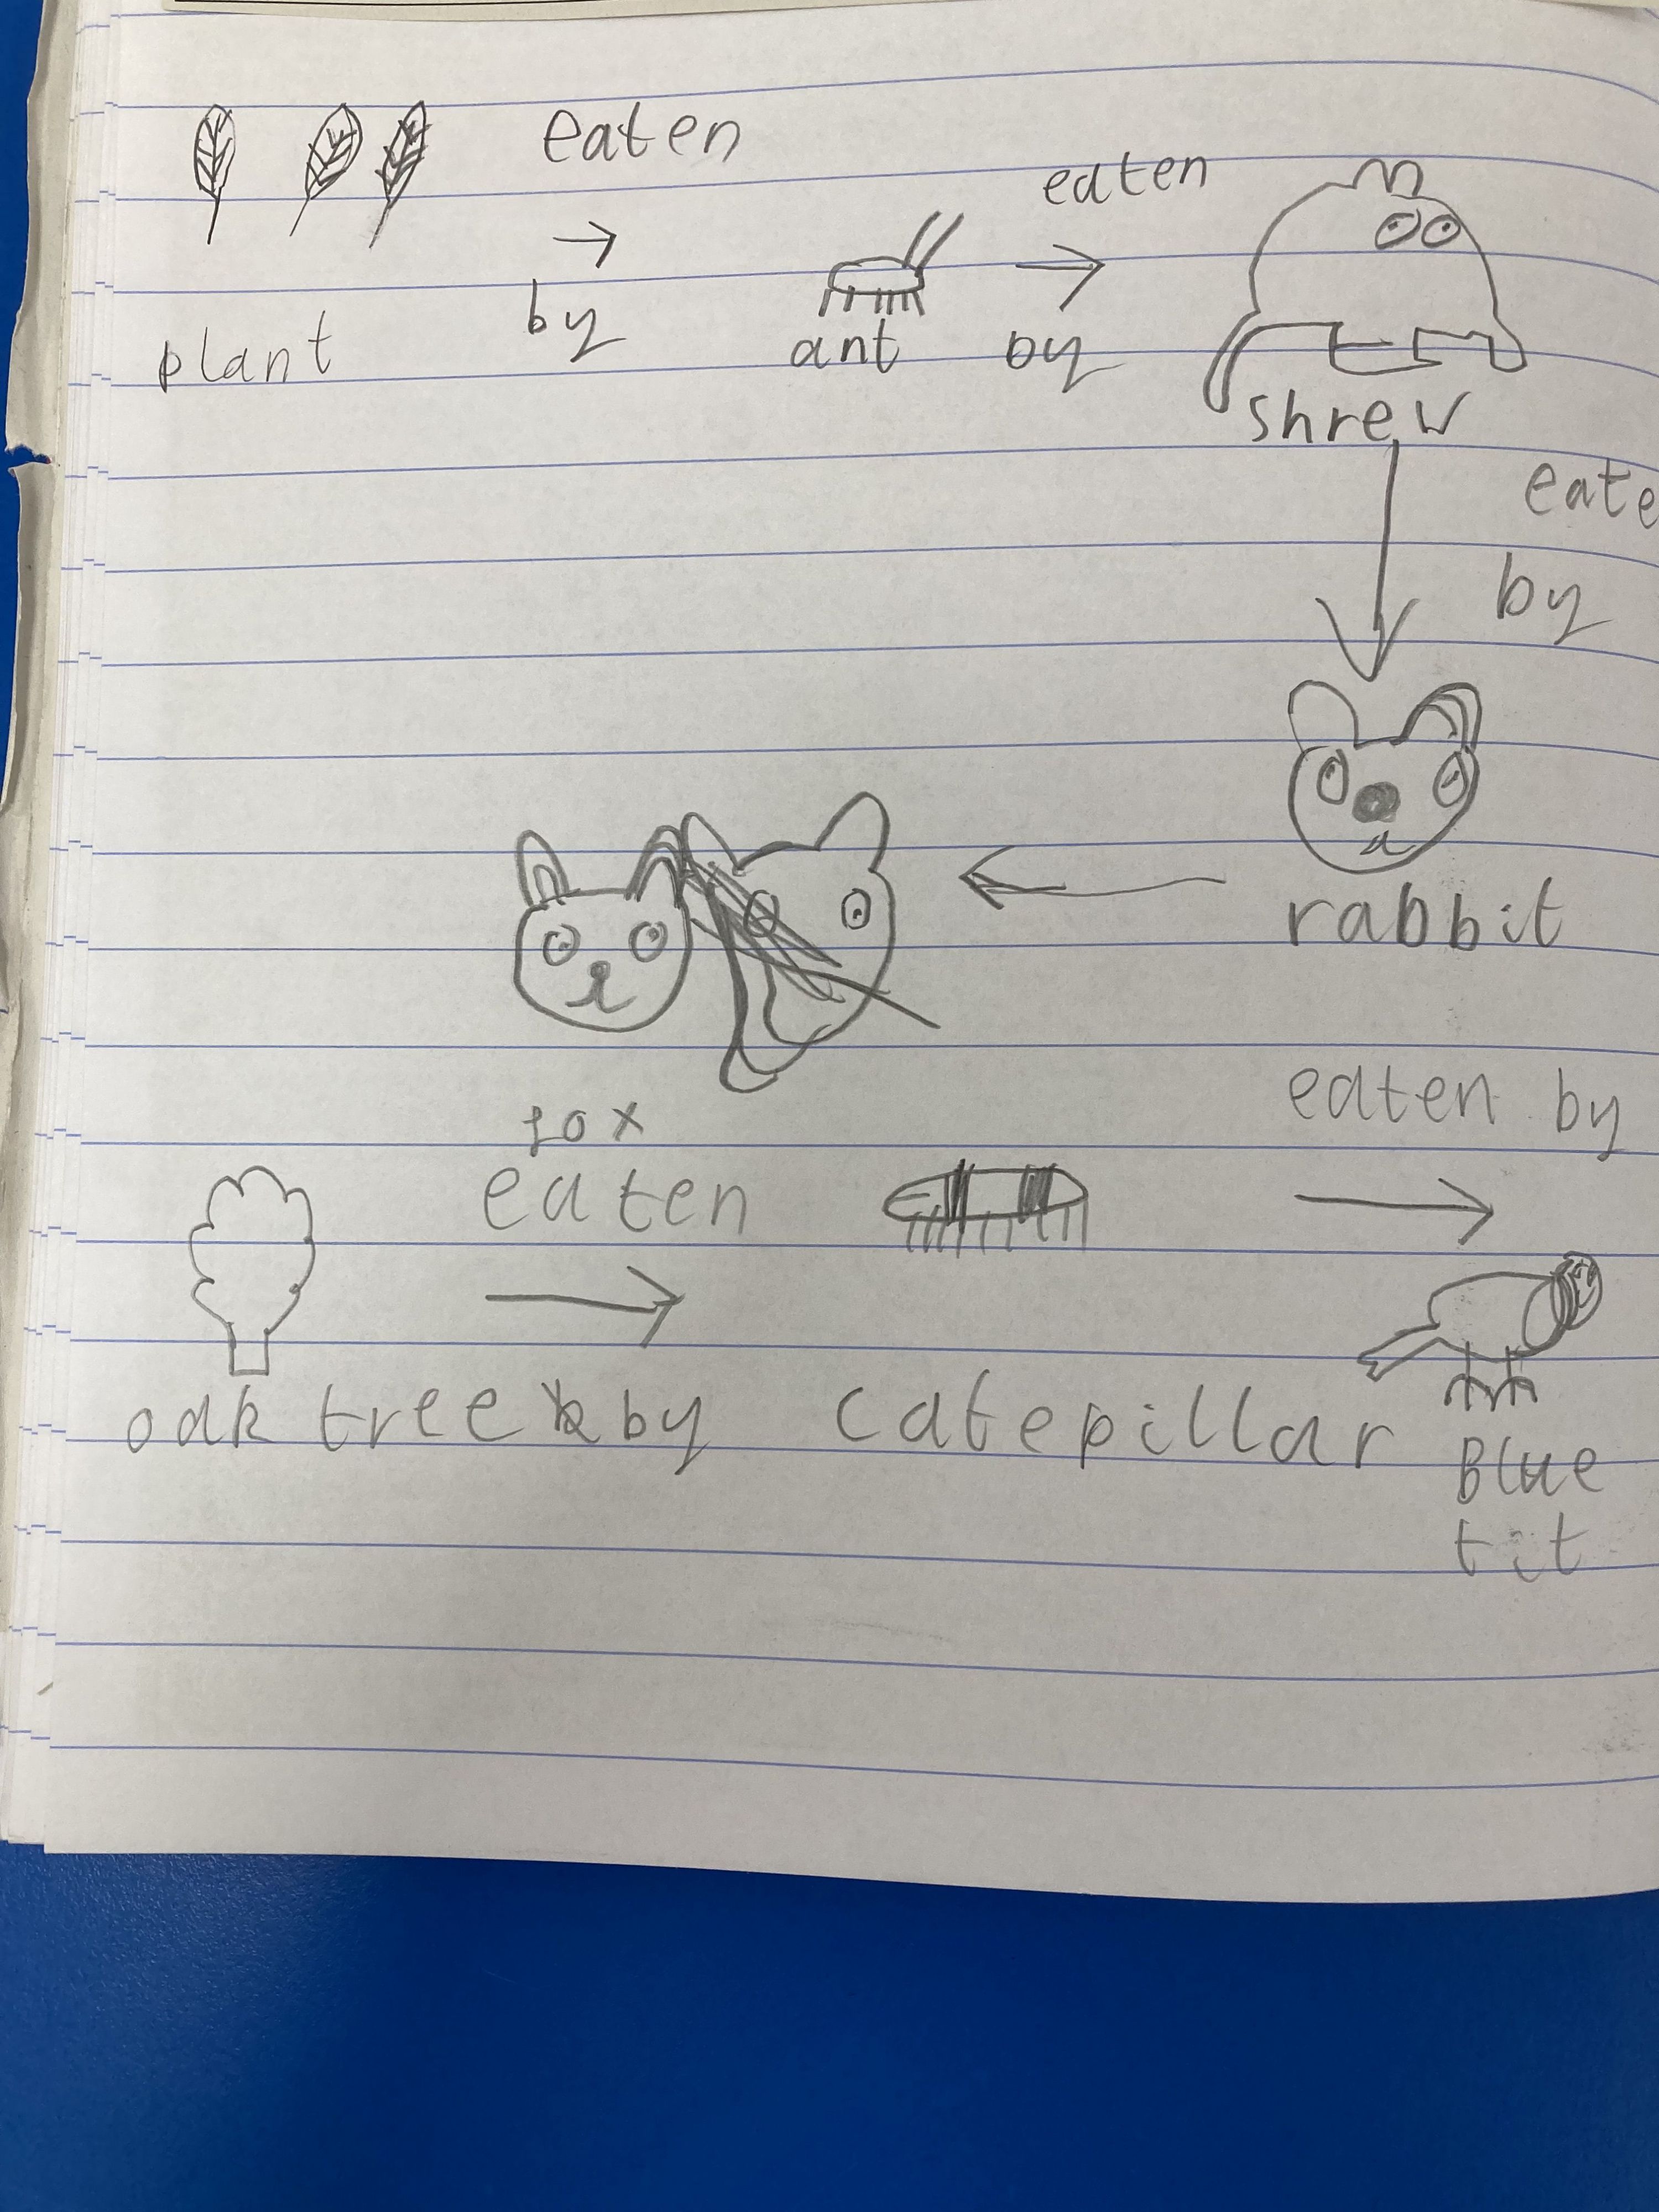 eaten
eaten
by
plant
ant by
shrew
eate
by
rabbit
fox
eaten by
eaten
oak tree by catepillar
Blue
tit